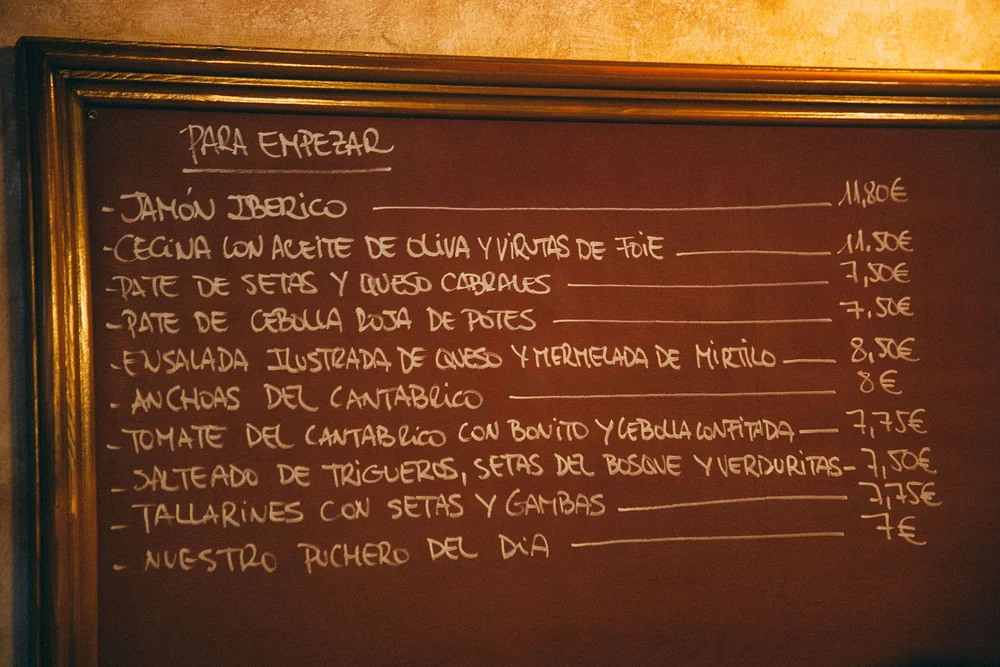 PARA EMPEZAR
- JAMÓN IBERICO 11,80€
- CECINA CON ACEITE DE OLIVA Y VIRUTAS DE FOIE 11,50€
- PATE DE SETAS Y QUESO CABRALES 7,50€
- PATE DE CEBOLLA ROJA DE POTES 7,50€
- ENSALADA ILUSTRADA DE QUESO Y MERMELADA DE MIRTILO 8,50€
- ANCHOAS DEL CANTABRICO 8€
- TOMATE DEL CANTABRICO CON BONITO Y CEBOLLA CONFITADA 7,75€
- SALTEADO DE TRIGUEROS, SETAS DEL BOSQUE Y VERDURITAS 7,50€
- TALLARINES CON SETAS Y GAMBAS 7,75€
- NUESTRO PUCHERO DEL DIA 7€